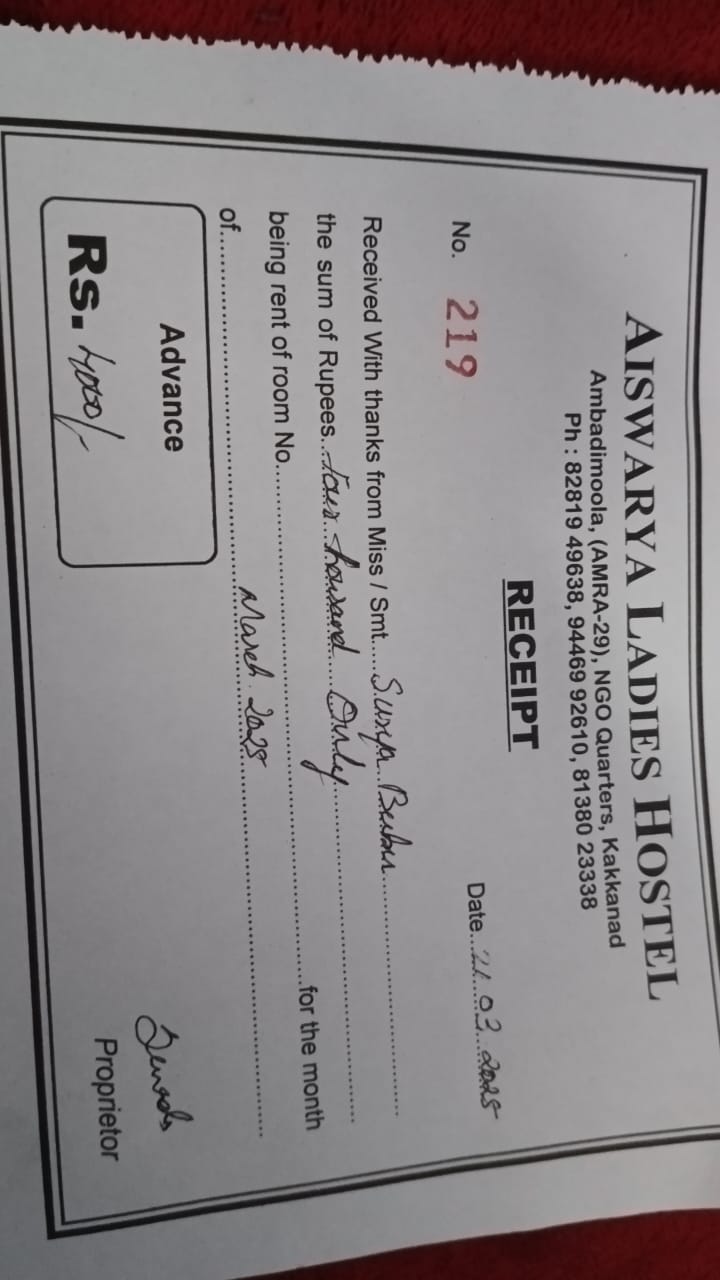 AISWARYA LADIES HOSTEL
Ambadimoola, (AMRA-29), NGO Quarters, Kakkanad
Ph : 82819 49638, 94469 92610, 81380 23338
RECEIPT
No. 219 Date...21.03.2025
Received With thanks from Miss / Smt....Surya Babu
the sum of Rupees...four thousand Only
being rent of room No. for the month
of March 2025
Advance
Rs. 4000/-
Proprietor